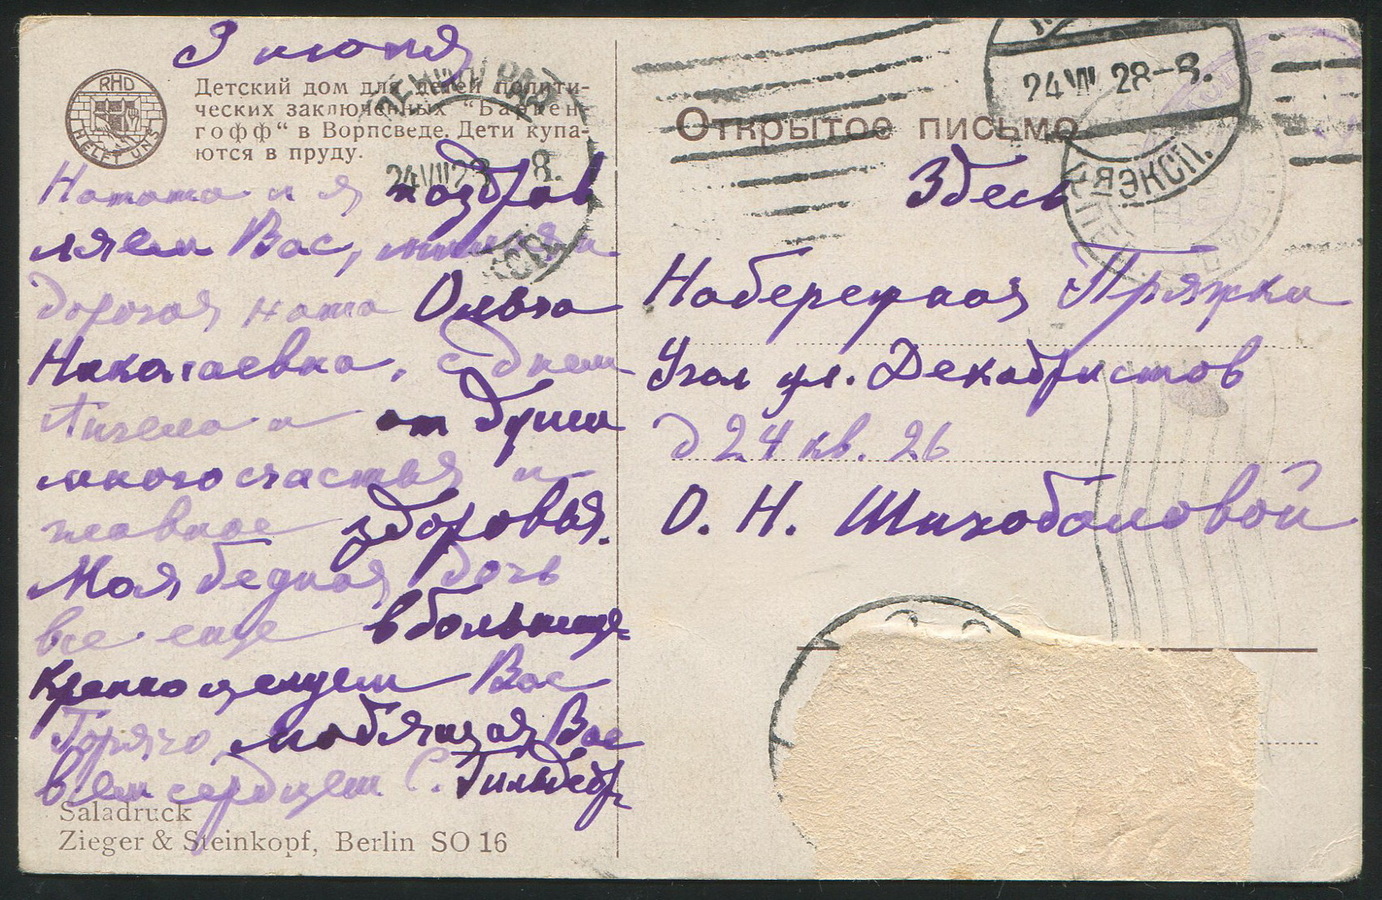 3 июля
RHD
HELFT UNS
Детский дом для детей полити-
ческих заключенных "Баркен-
гофф" в Ворпсведе. Дети купа-
ются в пруду.
24 VII 28 8.
Натата и я поздрав
ляем Вас, милая и
дорогая наша Ольга
Николаевна, с днем
Ангела и от души
много счастья и
главное здоровья.
Моя бедная дочь
все еще в больнице
Крепко целуем Вас
Горячо любящая Вас
всем сердцем С. Гильдебр
Saladruck
Zieger & Steinkopf, Berlin SO 16
24 VII 28-8.
Открытое письмо
ЯЭКСП.
Здесь
Набережная Пряжки
Угол ул. Декабристов
д 24 кв. 26
О. Н. Шихоболовой